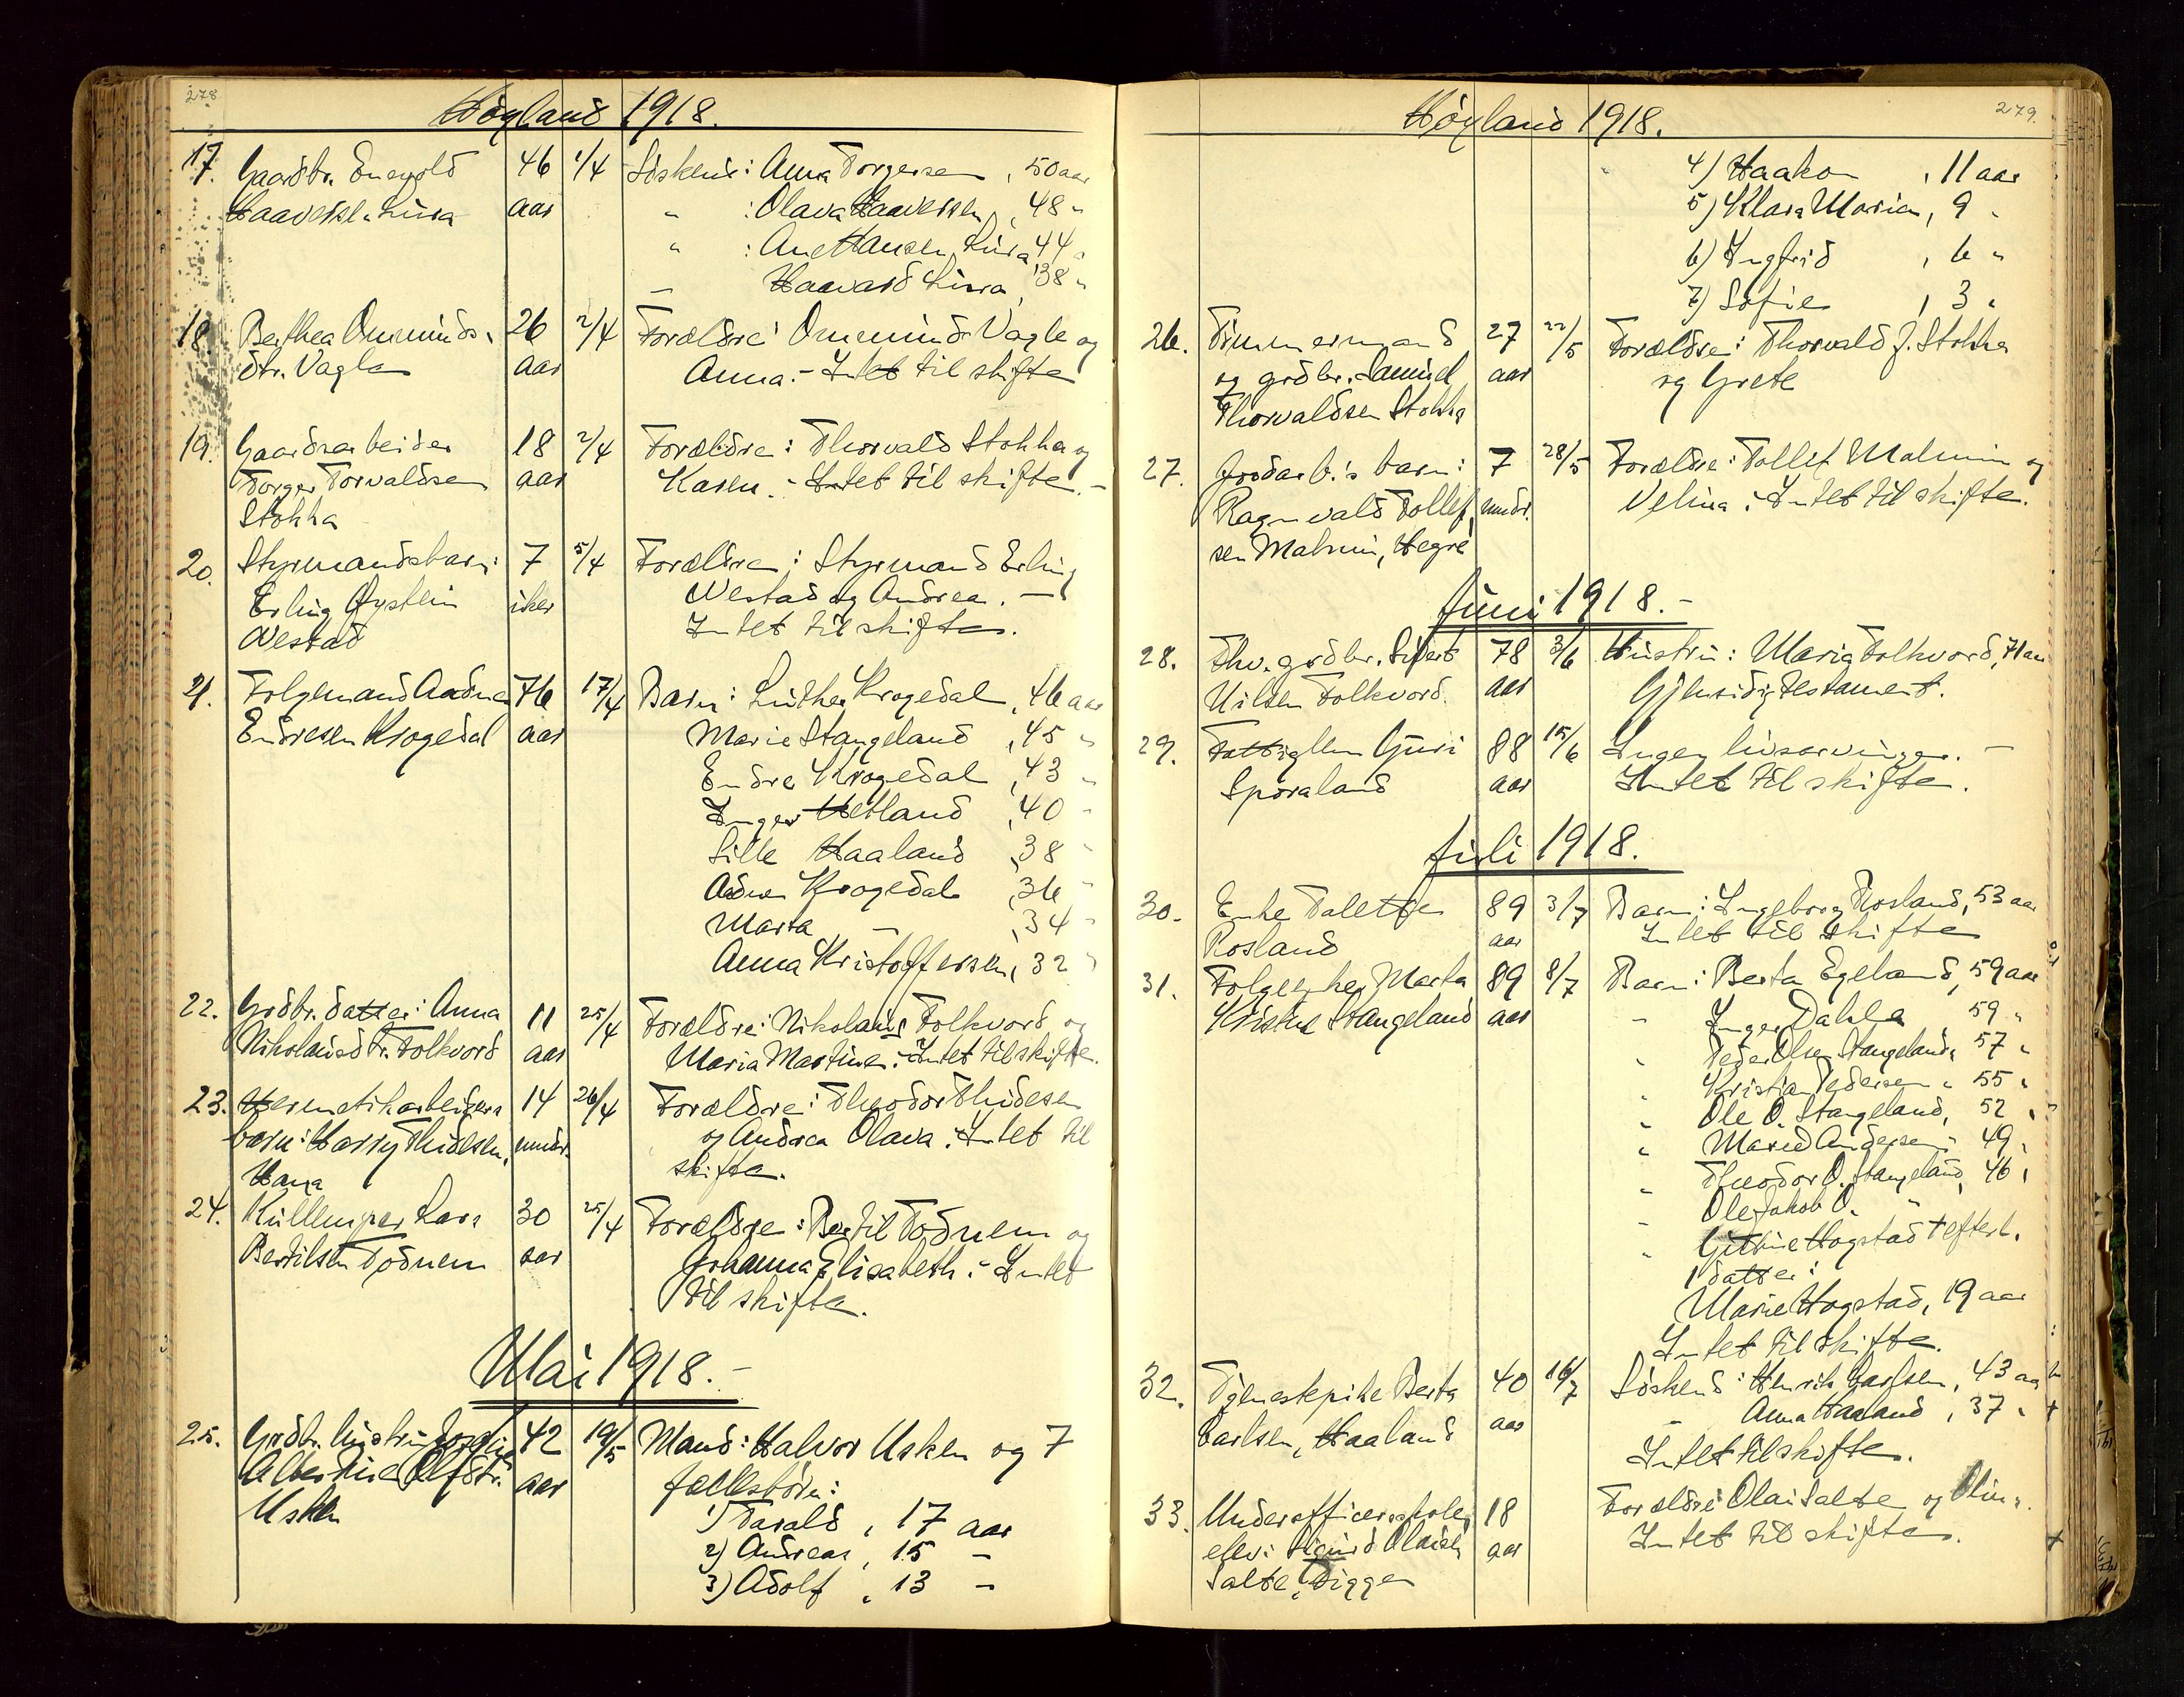 278
Høyland 1918.
17. Gaardbr. Enevold 46 1/4 Søskend: Anna Torgersen, 50 aar
Haaversen Lura aar " : Olava Haaversen, 48 "
" : Ane Hansen Lura 44 "
" Haavard Lura, 38 "
18. Berthea Ommunds- 26 2/4 Forældre: Ommund Vagle og
dtr. Vagle aar Anna. - Intet til skifte
19. Gaardsarbeider 18 2/4 Forældre: Thorvald Stokka og
Torger Torvaldsen aar Karen. - Intet til skifte. -
Stokka
20. Styrmandsbarn: 7 5/4 Forældre: Styrmand Erling
Erling Øystein uker Westad og Andrea. -
Westad Intet til skifte.
21. Folgemand Aadne 76 17/4 Barn: Luther Krogedal, 46 aar
Endresen Krogedal aar Marie Stangeland, 45 "
Endre Krogedal, 43 "
Inger Hetland, 40 "
Sille Haaland, 38 "
Aadne Krogedal, 36 "
Marta -, 34 "
Anna Kristoffersen, 32 "
22. Grdbr. datter: Anna 11 25/4 Forældre: Nikolaus Folkvord og
Nikolausdtr. Folkvord aar Maria Martine. Intet til skifte.
23. Hermetikarbeiders 14 26/4 Forældre: Theodor Thidesen
barn: Harry Thidesen, mndr. og Andrea Olava. Intet til
Hana skifte.
24. Kullemper Lars 30 25/4 Forældre: Bertil Todnem og
Bertilsen Todnem aar Johanna Elisabeth. - Intet
til skifte.
Mai 1918. -
25. Grdbr. hustru 42 19/5 Mand: Halvor Usken og 7
Albertine Olfsdtr. aar fællesbörn:
Usken 1) Tarald, 17 aar
2) Andreas, 15 -
3) Adolf, 13 -
279.
Høyland 1918.
4) Haakon, 11 aar
5) Klara Maria, 9 "
6) Ingfrid, 6 "
7) Sofie, 3 "
26. Timmermand 27 22/5 Forældre: Thorvald J. Stokka
og grdbr. Samuel aar og Grete
Thorvaldsen Stokka
27. Jordarb.'s barn: 7 28/5 Forældre: Tollef Malmin og
Ragnvald Tollef- mndr. Velina. Intet til skifte.
sen Malmin, Hegre
Juni 1918. -
28. Fhv. grdbr. Sivert 78 3/6 Hustru: Maria Folkvord, 71 aar
Nilsen Folkvord aar Gjensidig testament.
29. Fattiglem Guri 88 15/6 Ingen livsarvinger. -
Sporaland aar Intet til skifte.
Juli 1918.
30. Enke Talette 89 3/7 Barn: Ingeborg Rosland, 53 aar
Rosland aar Intet til skifte
31. Folgeenke Marta 89 8/7 Barn: Berta Egeland, 59 aar
Kristine Stangeland aar " Inger Dahle 59 "
" Peder Olsen Stangeland, 57 "
" Kristian Pedersen " 55 "
" Ole O. Stangeland, 52 "
" Marie Andersen " 49 "
" Theodor O. Stangeland, 46 "
" Ole Jakob O. "
" Gurine Hogstad † efterl.
1 datter:
Marie Hogstad, 19 aar
Intet til skifte.
32. Tjenestepike Berta 40 16/7 Söskend: Henrik Carlsen, 43 aar
Carlsen, Haaland aar " Anna Haaland, 37 "
Intet til skifte.
33. Underofficersskole- 18 Forældre Olai Salte og Olina.
elev: Sigurd Olaisen aar Intet til skifte.
Salte, Figgen